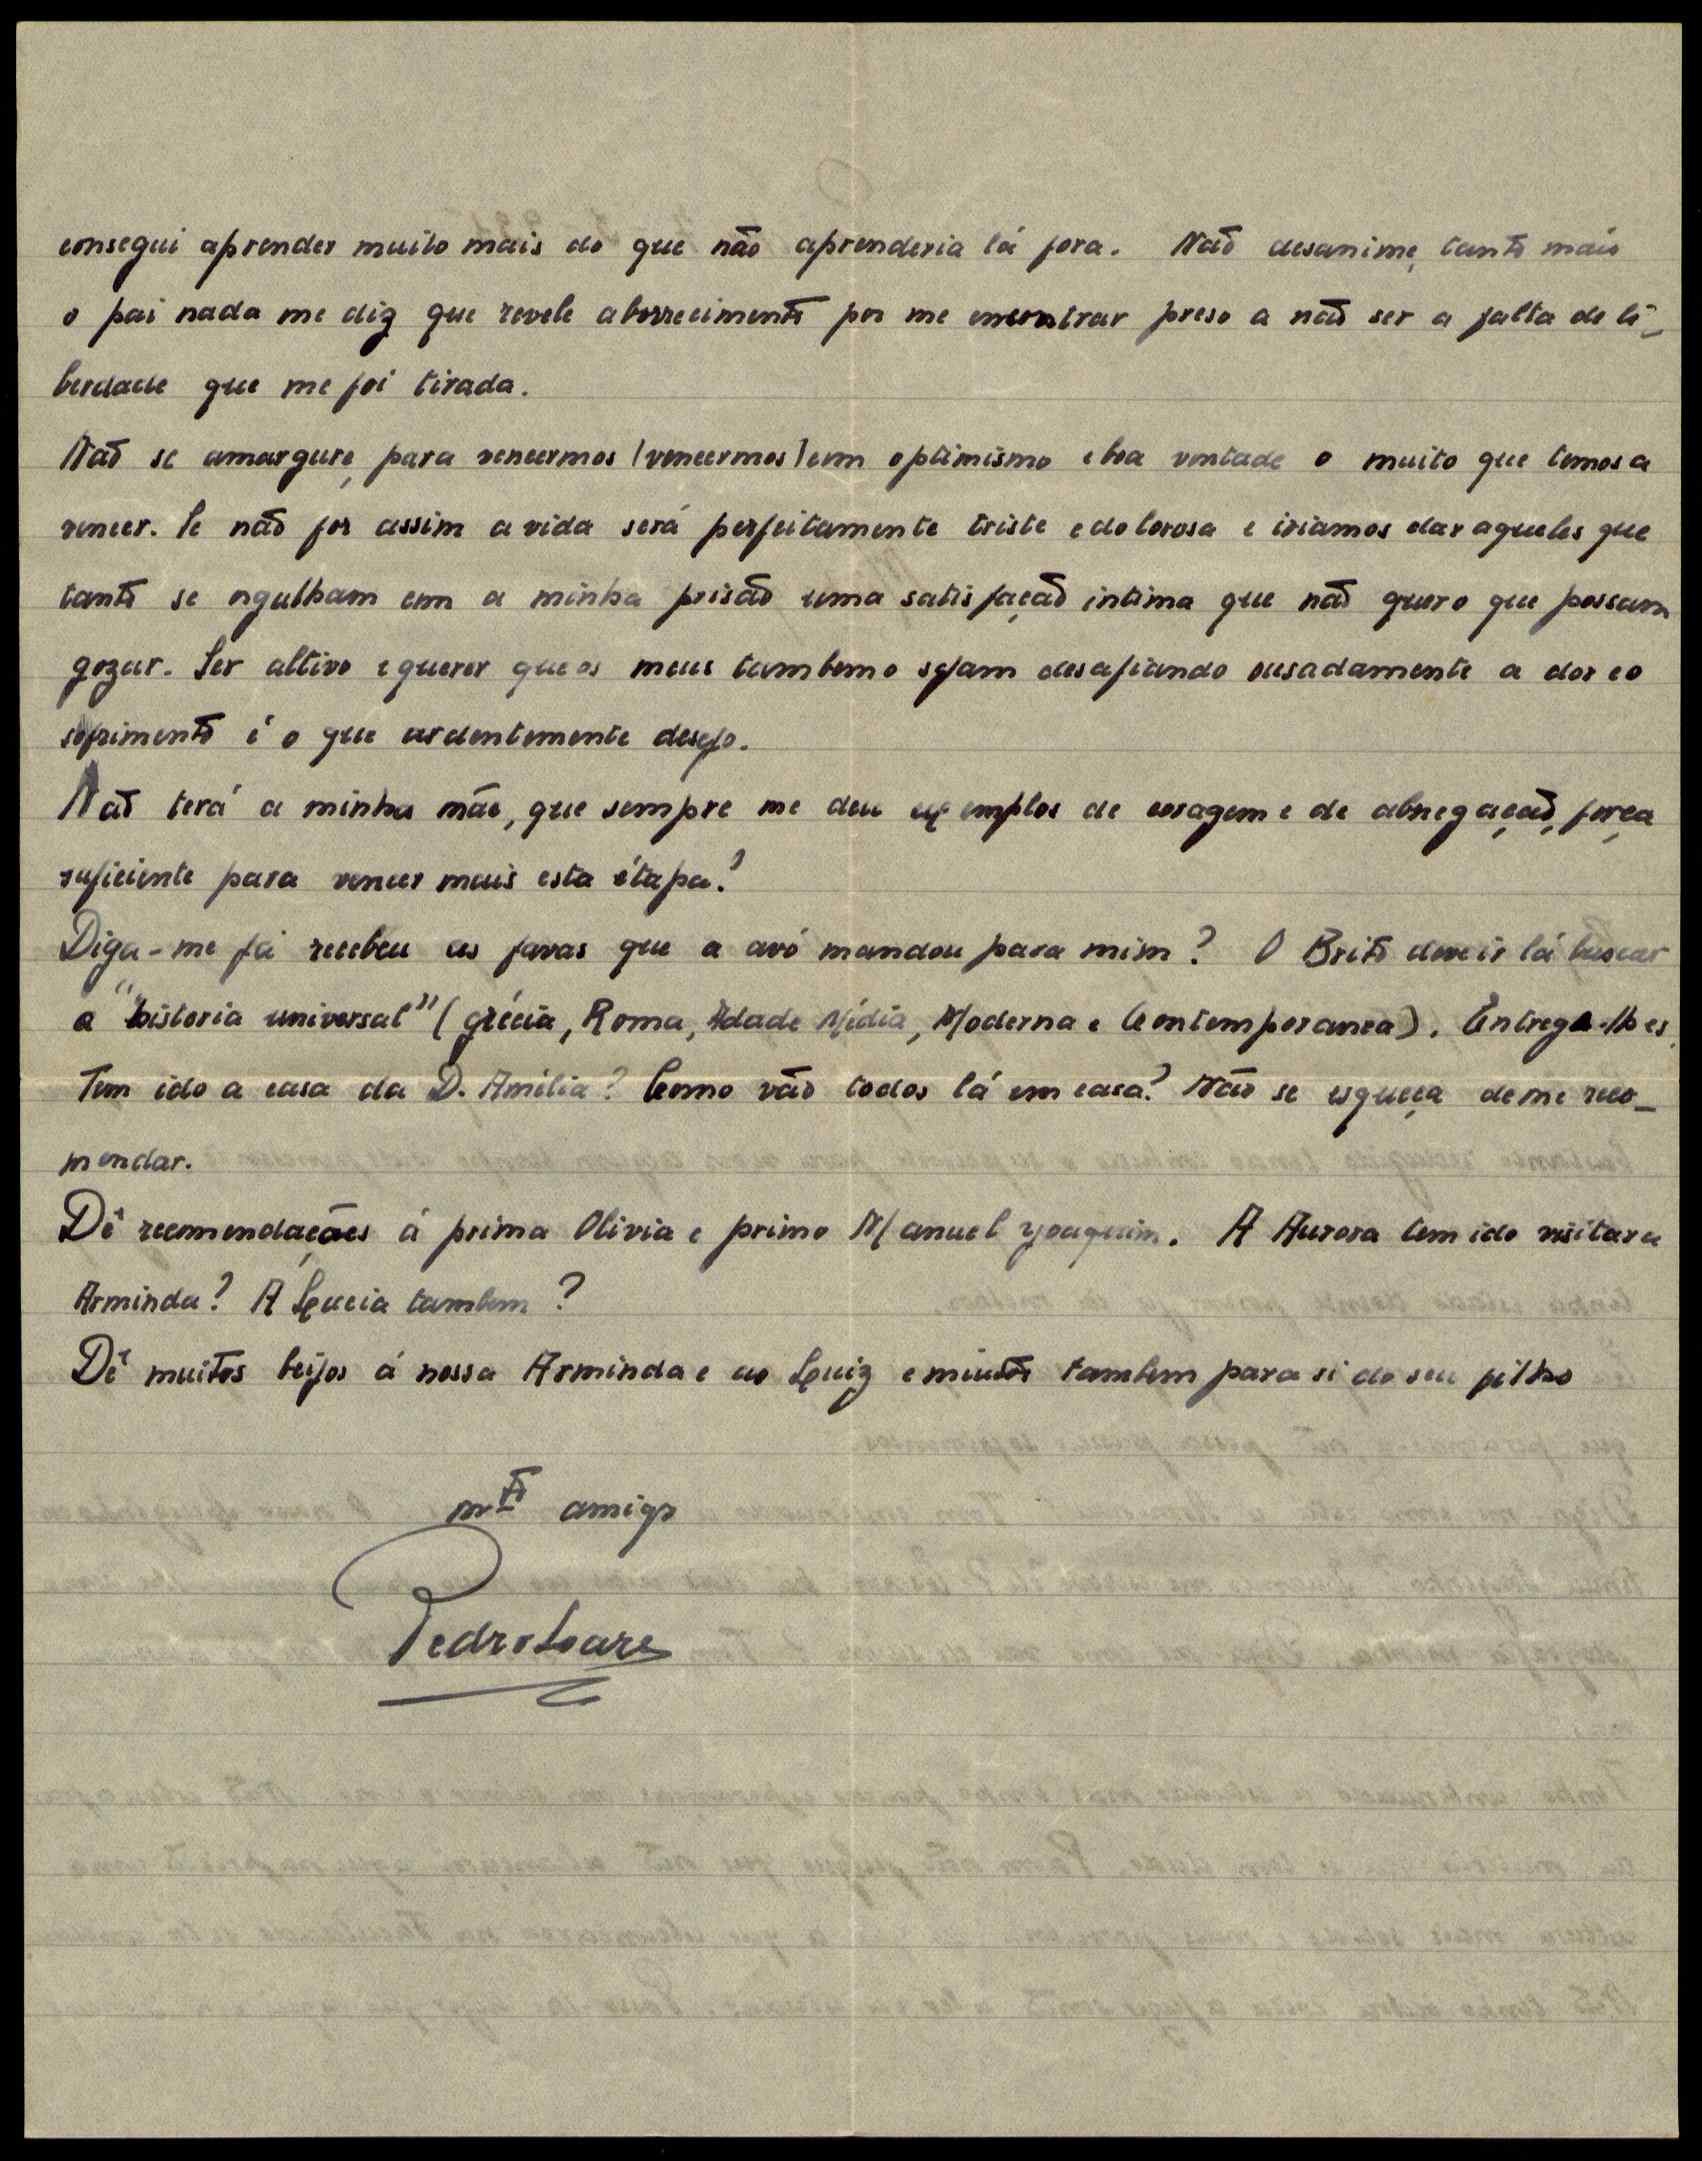 consegui aprender muito mais do que não aprenderia lá fora. Não desanime, tanto mais
o pai nada me diz que revele aborrecimento por me encontrar preso a não ser a falta de li-
berdade que me foi tirada.
Não se amargure, para vencermos (vencermos) com optimismo e boa vontade o muito que temos a
vencer. Se não for assim a vida será perfeitamente triste e dolorosa e iriamos dar aqueles que
tanto se orgulham com a minha prisão uma satisfação intima que não quero que possam
gozar. Ser altivo e querer que os meus tambem o sejam desafiando ousadamente a dor e o
sofrimento é o que ardentemente desejo.
Não terá a minha mãe, que sempre me deu exemplos de coragem e de abnegação, força
suficiente para vencer mais esta étapa?
Diga-me já recebeu as favas que a avó mandou para mim? O Brito deve ir lá buscar
a "historia universal" (Grécia, Roma, Idade Média, Moderna e Contemporanea). Entregue-lhes.
Tem ido a casa da D. Amélia? Como vão todos lá em casa? Não se esqueça de me reco-
mendar.
Dê recomendações á prima Olivia e primo Manuel Joaquim. A Aurora tem ido visitar a
Arminda? A Lucia tambem?
Dê muitos beijos á nossa Arminda e ao Luiz e muitos tambem para si do seu filho
mto amigo
Pedro Soares